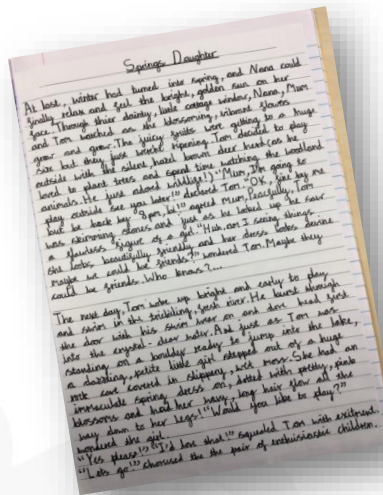 Springs Daughter
At last, winter had turned into spring, and Nana could
finally relax and feel the bright, golden sun on her
face. Through thier dainty, little cottage window, Nana, Mum
and Tom watched as the blossoming, vibrant flowers
grow and grow. The juicy fruits were getting to a huge
size but they just weren't ripening. Tom decided to play
outside with the silent, hazel brown deer head (as he
loved to plant trees and spent time watching the woodland
animals. He just adored wildlife!) "Mum, I'm going to
play outside see you later!" declared Tom. "OK, fine by me
but be back by 8pm," agreed Mum. Peacefully, Tom
was skimming stones and just as he looked up he saw
a flawless figure of a girl. "Huh, am I seeing things
she looks beautifully friendly and her dress looks divine
maybe we could be friends?" wondered Tom. Maybe they
could be friends. Who knows?...
The next day, Tom woke up bright and early to play
and swim in the trickling, fresh river. He burst through
the door with his swim wear on and dove head first
into the crystal-clear water. And just as Tom was
standing on a boulder ready to jump into the lake,
a dazzling, petite little girl stepped out of a huge
rock cave covered in slippery, wet moss. She had an
immaculate spring dress on, dotted with pretty, pink
blossoms and had her wavy, long hair flow all the
way down to her legs! "Would you like to play?"
wondered the girl.
"Yes please!" "I'd love that!" squealed Tom with excitment.
"Lets go!" chorused the the pair of enthuisiastic children.